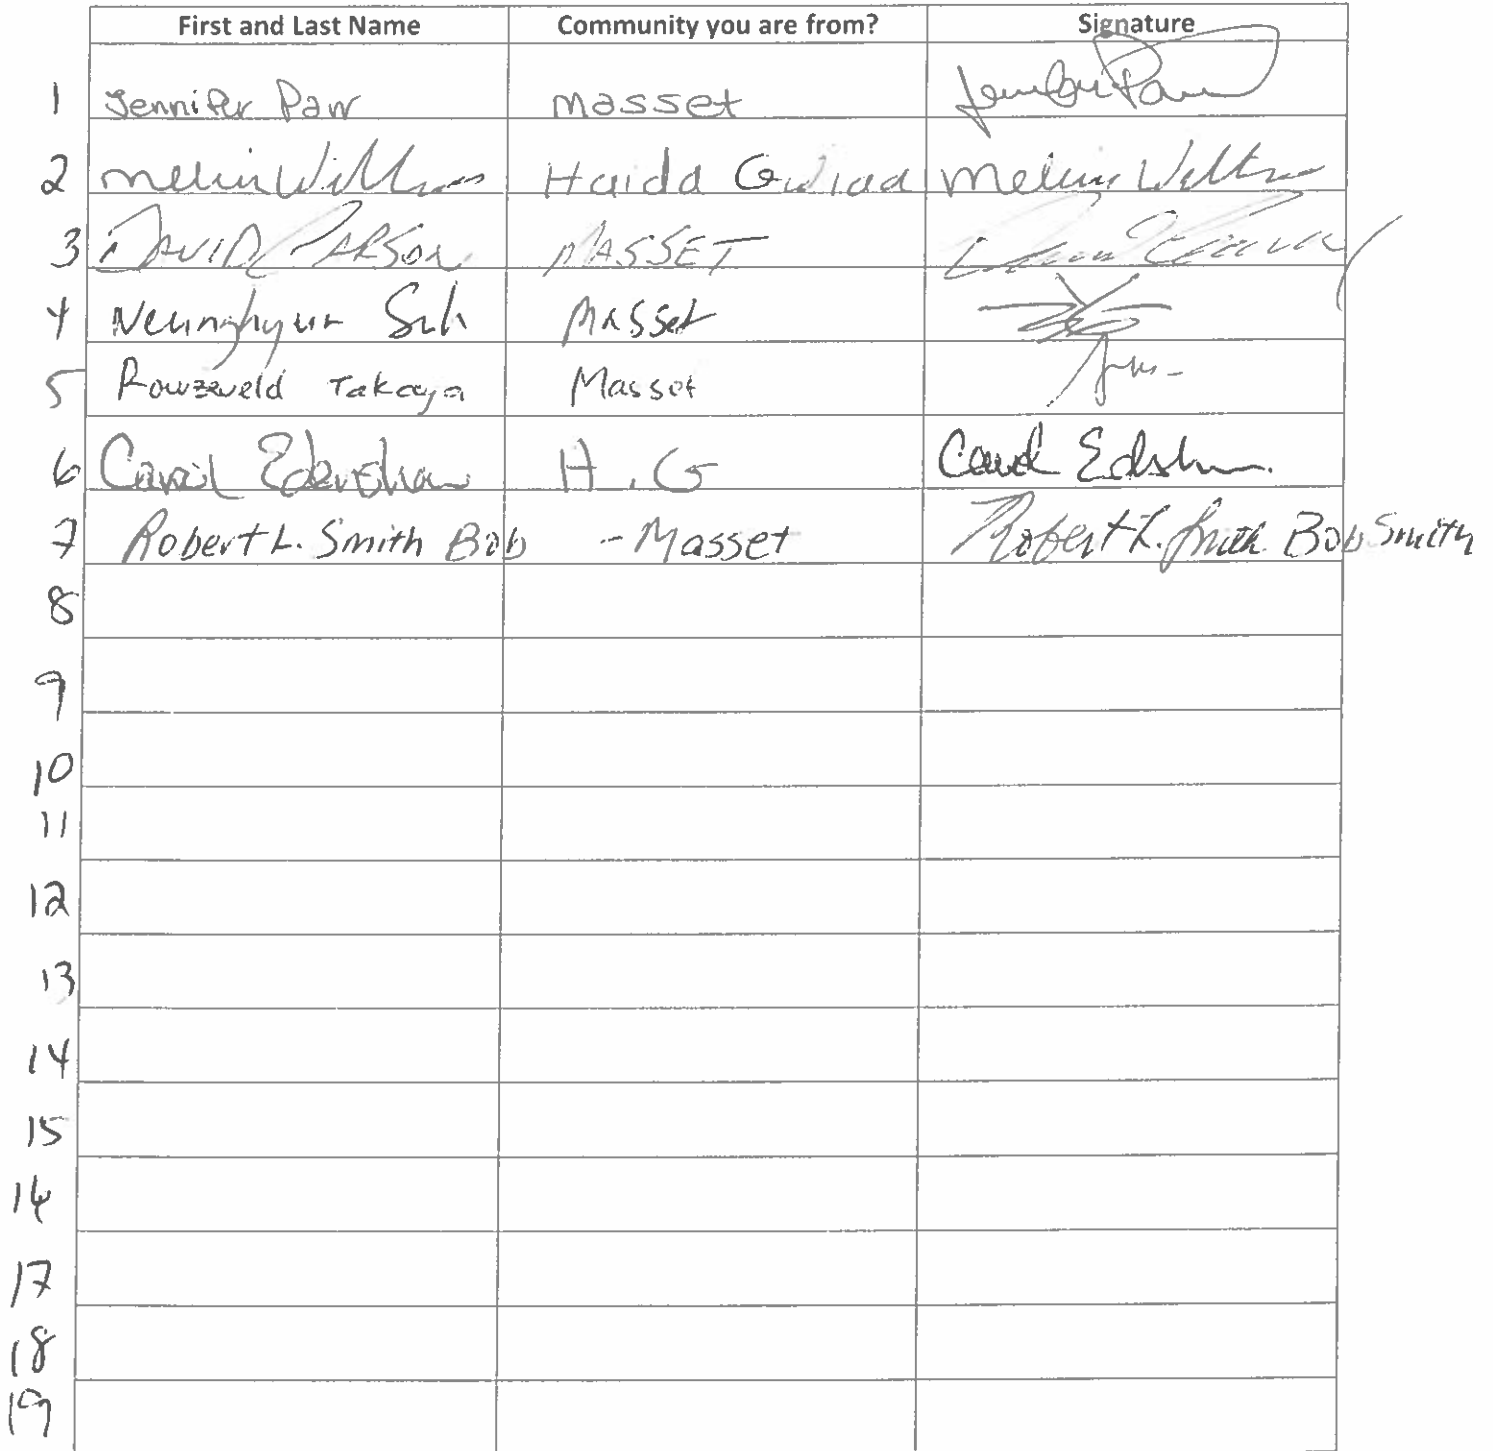 First and Last Name Community you are from? Signature
1 Jennifer Parr masset Jennifer Parr
2 Melvin Haida Gwiaa Melvin
3 DAVID PARSON MASSET
4 Neunghyun Suh Masset
5 Rowzeweld Takaya Masset
6 Carol Edenshaw H.G Carol
7 Robert L. Smith Bob - Masset Robert L. Smith Bob Smith
8
9
10
11
12
13
14
15
16
17
18
19